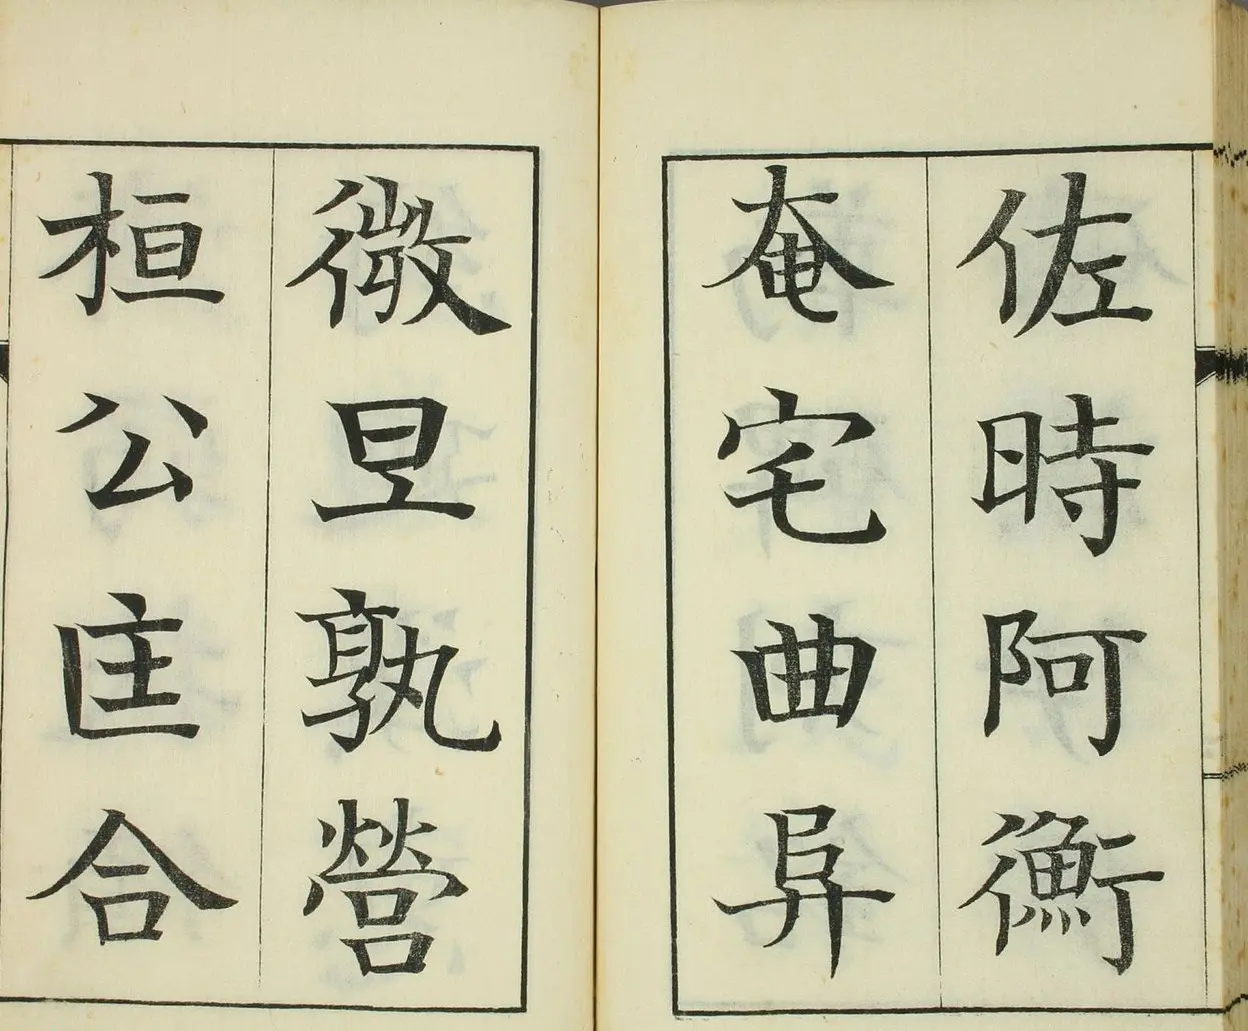 佐時阿衡
奄宅曲阜
微旦孰營
桓公匡合